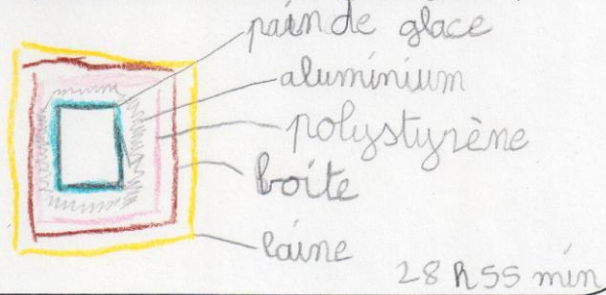 pain de glace
aluminium
polystyrène
boite
laine
28 h 55 min